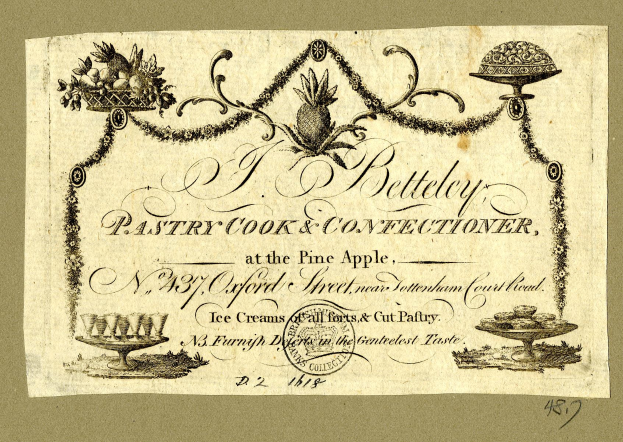 J. Betteley,
PASTRY COOK & CONFECTIONER,
at the Pine Apple,
No. 437, Oxford Street, near Tottenham Court Road.
Ice Creams of all sorts, & Cut Pastry.
NB. Furnish Deserts in the Genteelest Taste.
BANKS COLLECTION
D. 2 1618
48.7